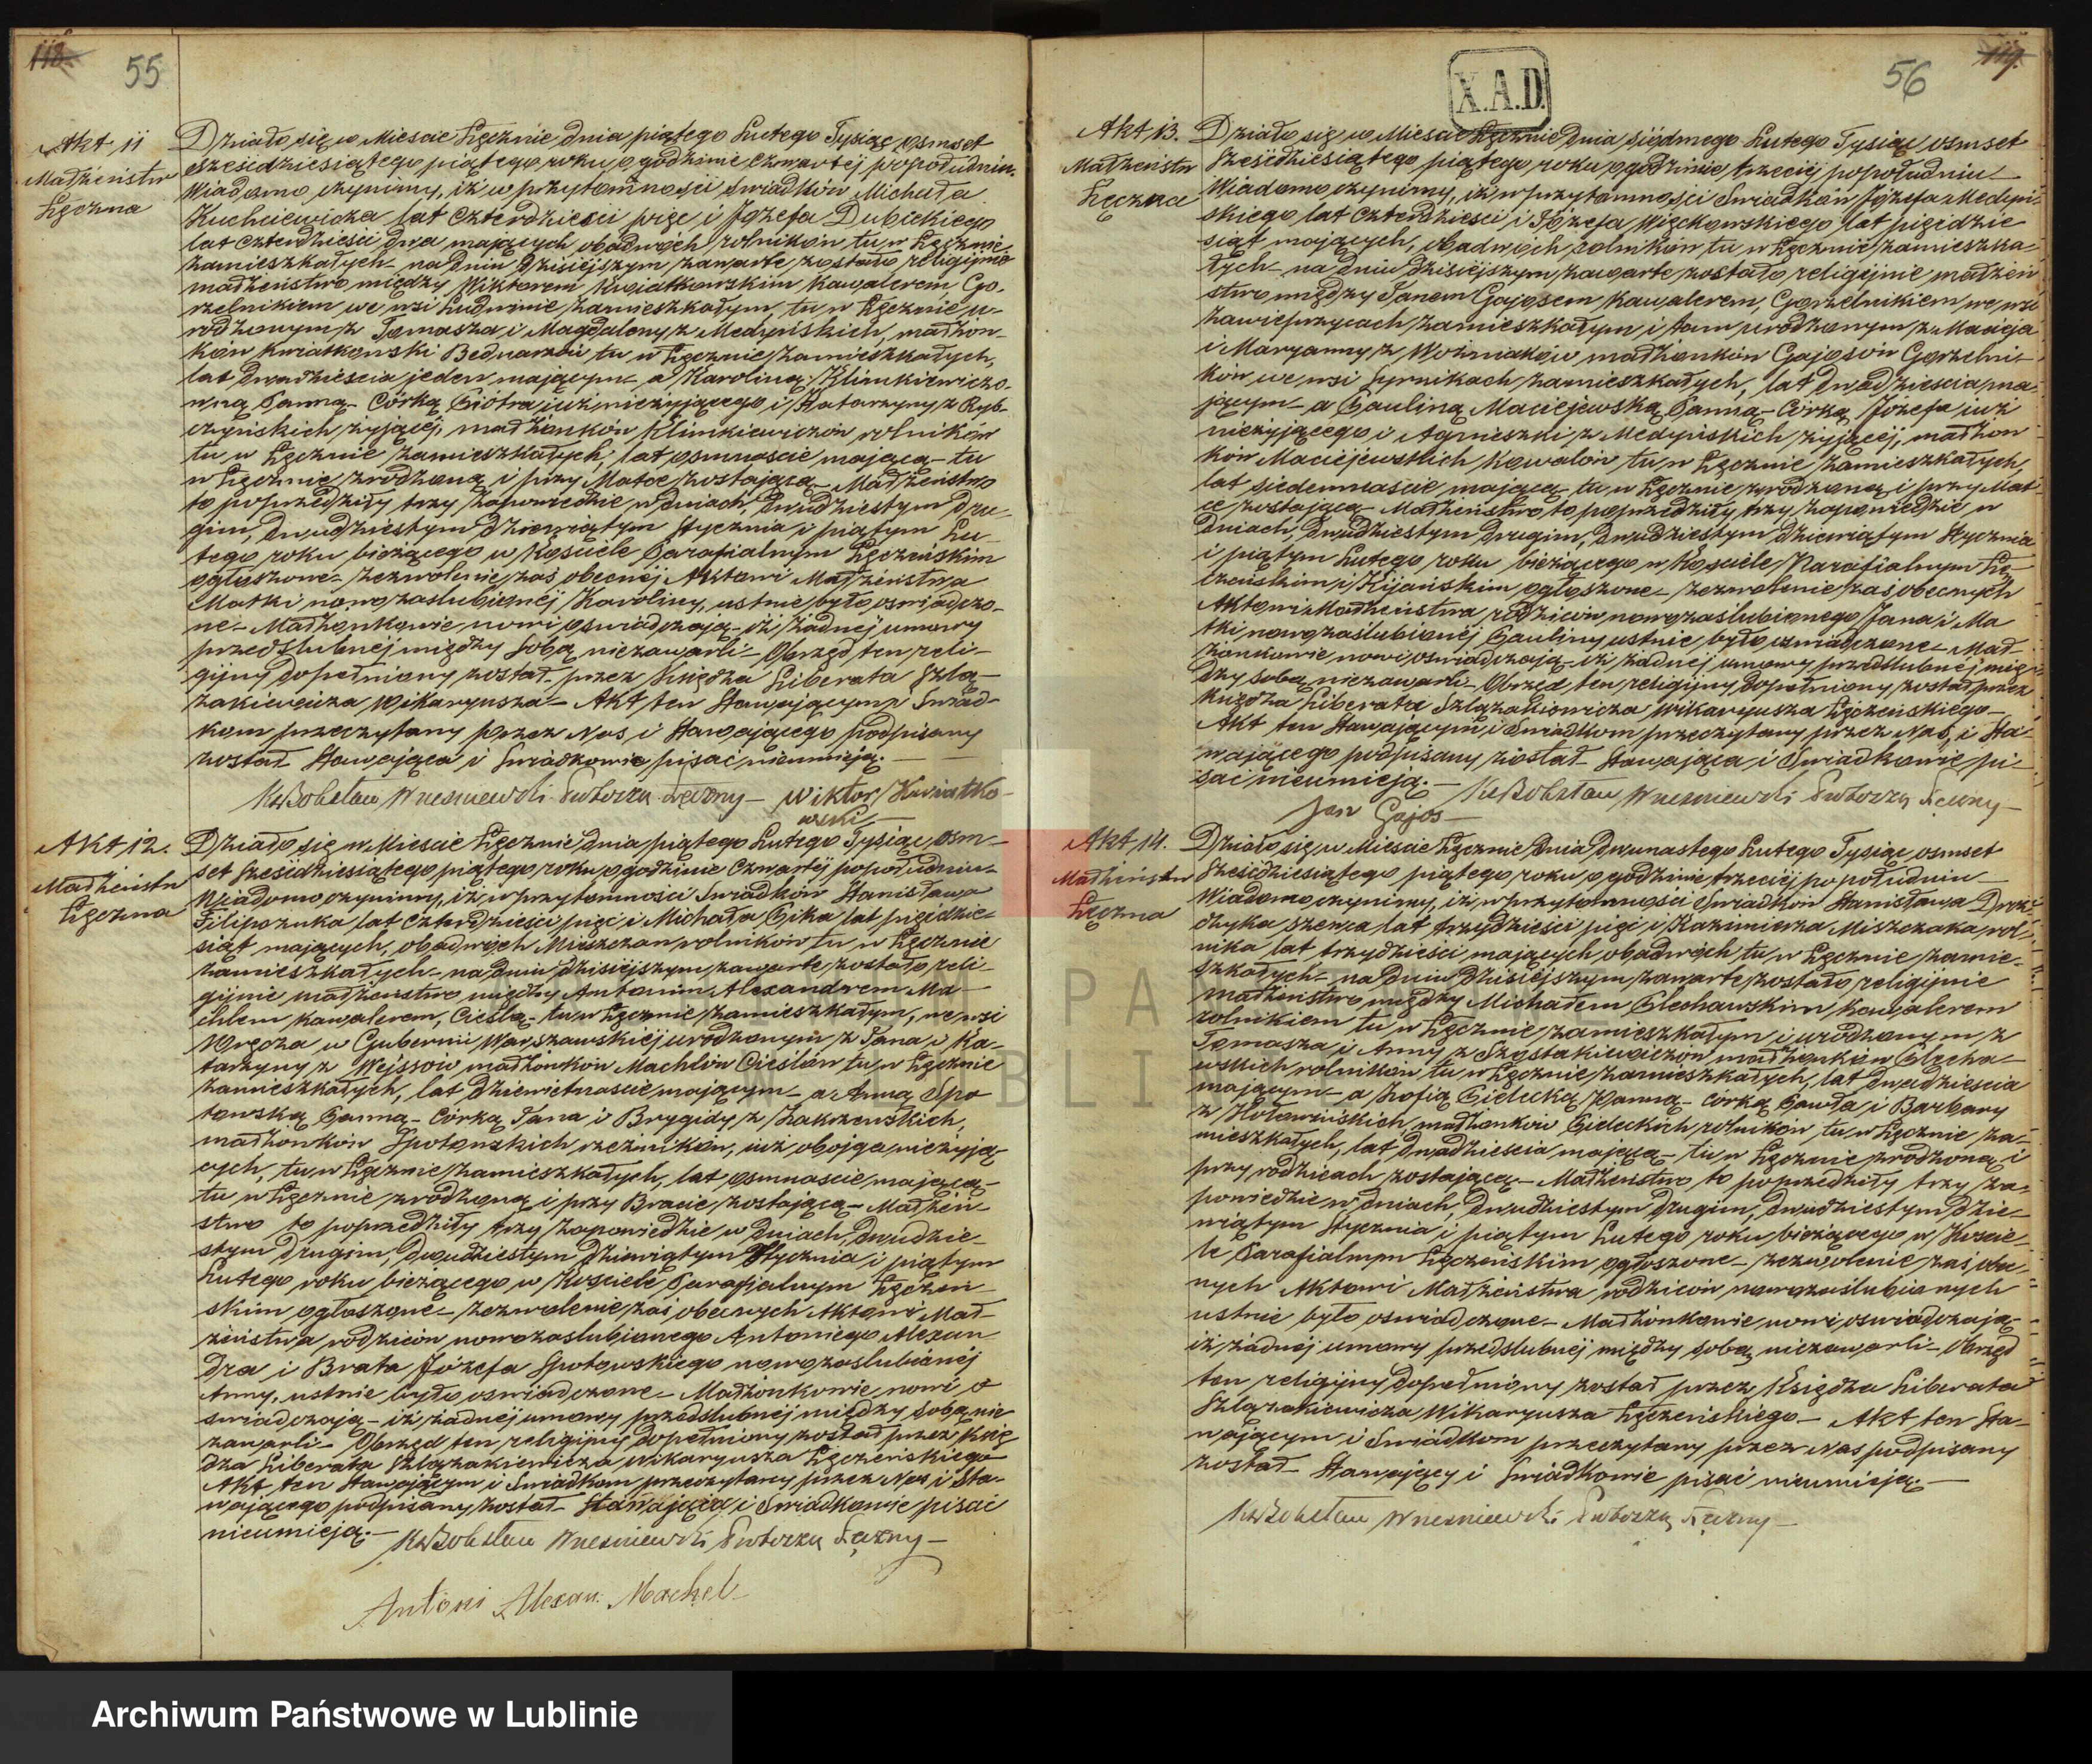 118.
55
Akt 11
Małżeństw
Łęczna
Działo się w Mieście Łęcznie dnia piątego Lutego Tysiąc osmset
sześćdziesiątego piątego roku o godzinie czwartej popołudniu.
Wiadomo czynimy, iż w przytomności Swiadków Michała
Kuchciewicza lat czterdzieści pięć i Józefa Dubickiego
lat czterdzieści dwa mających obadwóch rolników tu w Łęcznie
zamieszkałych na dniu dzisiejszym zawarte zostało religijnie
małżeństwo między Wiktorem Kwiatkowskim Kawalerem Go-
rzelnikiem we wsi Ludwinie zamieszkałym, tu w Łęcznie u-
rodzonym z Tomasza i Magdaleny z Medyńskich, małżon-
ków Kwiatkowski Bednarzów tu w Łęcznie zamieszkałych,
lat dwadzieścia jeden mającym a Karoliną Klimkiewiczo-
wną Panną Córką Piotra już nieżyjącego i Katarzyny z Ryb-
czyńskich żyjącej, małżonków Klimkiewiczów rolników
tu w Łęcznie zamieszkałych, lat osmnaście mającą tu
w Łęcznie zrodzoną i przy Matce zostającą Małżeństwo
to poprzedziły trzy zapowiedzie w dniach, dwudziestym dru-
gim, dwudziestym dziewiątym Stycznia i piątym Lu-
tego roku bieżącego w Kościele Parafialnym Łęczeńskim
ogłoszone zezwolenie zaś obecnej Aktowi Małżeństwa
Matki nowozaślubionej Karoliny, ustnie było oświadczo-
ne Małżonkowie nowi oświadczają iż żadnej umowy
przedślubnej między sobą niezawarli Obrzęd ten reli-
gijny dopełniony został przez Księdza Liberata Szlą-
zakiewicza Wikaryusza Akt ten Stawającym i Świad-
kom przeczytany przez Nas i Stawającego podpisany
został Stawająca i Świadkowie pisać nieumieją.
Wiktor Kwiatko-
wski
Akt 12.
Małżeństw
Łęczna
Działo się w Mieście Łęcznie dnia piątego Lutego Tysiąc osm-
set sześćdziesiątego piątego roku o godzinie czwartej popołudniu
Wiadomo czynimy, iż w przytomności Świadków Stanisława
Filipczuka lat czterdzieści pięć i Michała Pika lat pięćdzie-
siąt mających, obadwóch Mieszczan rolników tu w Łęcznie
zamieszkałych na dniu dzisiejszym zawarte zostało reli-
gijnie małżeństwo między Antonim Alexandrem Ma-
chlem Kawalerem, Cieślą tu w Łęcznie zamieszkałym, we wsi
Wręcza w Gubernii Warszawskiej urodzonym z Jana i Ka-
tarzyny z Wejssów małżonków Machlów Cieślów tu w Łęcznie
zamieszkałych, lat dziewietnaście mającym a Anną Spo-
towską Panną Córką Jana i Brygidy z Zakrzewskich,
małżonków Spotowskich rzeźników, już obojga nieżyją-
cych, tu w Łęcznie zamieszkałych, lat osmnaście mającą
tu w Łęcznie zrodzoną i przy Bracie zostającą Małżeń-
stwo to poprzedziły trzy zapowiedzie w dniach, dwudzie-
stym drugim, dwudziestym dziewiątym Stycznia i piątym
Lutego roku bieżącego w Kościele Parafialnym Łęczeń-
skim ogłoszone zezwolenie zaś obecnych Aktowi Mał-
żeństwa rodziców nowozaślubionego Antoniego Alexan-
dra i Brata Józefa Spotowskiego nowozaślubionej
Anny, ustnie było oświadczone Małżonkowie nowi o-
świadczają iż żadnej umowy przedślubnej między sobą nie
zawarli Obrzęd ten religijny dopełniony został przez Księ-
dza Liberata Szlązakiewicza Wikaryusza Łęczeńskiego
Akt ten Stawającym i Świadkom przeczytany przez Nas i Sta-
wającego podpisany został Stawająca i Świadkowie pisać
nieumieją.
Antoni Alexan. Machel
119.
56
X.A.D.
Akt 13.
Małżeństw
Łęczna
Działo się w Mieście Łęcznie dnia siódmego Lutego Tysiąc osmset
sześćdziesiątego piątego roku o godzinie trzeciej popołudniu
Wiadomo czynimy, iż w przytomności Świadków Józefa Medyń-
skiego lat czterdzieści i Józefa Więckowskiego lat pięćdzie-
siąt mających, obadwóch rolników tu w Łęcznie zamieszka-
łych na dniu dzisiejszym zawarte zostało religijnie małżeń-
stwo między Janem Gajosem Kawalerem, Gorzelnikiem we wsi
Zawieprzycach zamieszkałym i tam urodzonym z Macieja
i Maryanny z Woźniaków małżonków Gajosów Gorzelni-
ków we wsi Syrnikach zamieszkałych, lat dwadzieścia ma-
jącym a Pauliną Maciejewską Panną Córką Józefa już
nieżyjącego i Agnieszki z Medyńskich żyjącej, małżon-
ków Maciejewskich Kowalów tu w Łęcznie zamieszkałych,
lat siedemnaście mającą tu w Łęcznie zrodzoną i przy Mat-
ce zostającą Małżeństwo to poprzedziły trzy zapowiedzie w
dniach, dwudziestym drugim, dwudziestym dziewiątym Stycznia
i piątym Lutego roku bieżącego w Kościele Parafialnym Łę-
czeńskim i Kijańskim ogłoszone zezwolenie zaś obecnych
Aktowi Małżeństwa rodziców nowozaślubionego Jana i Ma-
tki nowozaślubionej Pauliny ustnie było oświadczone Mał-
żonkowie nowi oświadczają iż żadnej umowy przedślubnej mię-
dzy sobą niezawarli Obrzęd ten religijny dopełniony został przez
Księdza Liberata Szlązakiewicza Wikaryusza Łęczeńskiego
Akt ten Stawającym i Świadkom przeczytany przez Nas, i Sta-
wającego podpisany został Stawająca i Świadkowie pi-
sać nieumieją.
Jan Gajos
Akt 14.
Małżeństw
Łęczna
Działo się w Mieście Łęcznie dnia dwunastego Lutego Tysiąc osmset
sześćdziesiątego piątego roku o godzinie trzeciej popołudniu
Wiadomo czynimy, iż w przytomności Świadków Stanisława Droż-
dżyka szewca lat trzydzieści pięć i Kazimierza Miszczaka rol-
nika lat trzydzieści mających obadwóch tu w Łęcznie zamie-
szkałych na dniu dzisiejszym zawarte zostało religijnie
małżeństwo między Michałem Olechowskim Kawalerem
rolnikiem tu w Łęcznie zamieszkałym i urodzonym z
Tomasza i Anny z Szostakiewiczów małżonków Olecho-
wskich rolników tu w Łęcznie zamieszkałych, lat dwadzieścia
mającym a Zofią Pielecką Panną córką Pawła i Barbary
z Hołowińskich małżonków Pieleckich rolników tu w Łęcznie za-
mieszkałych, lat dwadzieścia mającą tu w Łęcznie zrodzoną i
przy rodzicach zostającą Małżeństwo to poprzedziły trzy za-
powiedzie w dniach, dwudziestym drugim, dwudziestym dzie-
wiątym Stycznia i piątym Lutego roku bieżącego w Koście-
le Parafialnym Łęczeńskim ogłoszone zezwolenie zaś obe-
cnych Aktowi Małżeństwa rodziców nowozaślubionych
ustnie było oświadczone Małżonkowie nowi oświadczają
iż żadnej umowy przedślubnej między sobą niezawarli Obrzęd
ten religijny dopełniony został przez Księdza Liberata
Szlązakiewicza Wikaryusza Łęczeńskiego Akt ten Sta-
wającym i Świadkom przeczytany przez Nas podpisany
został Stawający i Świadkowie pisać nieumieją.
Archiwum Państwowe w Lublinie